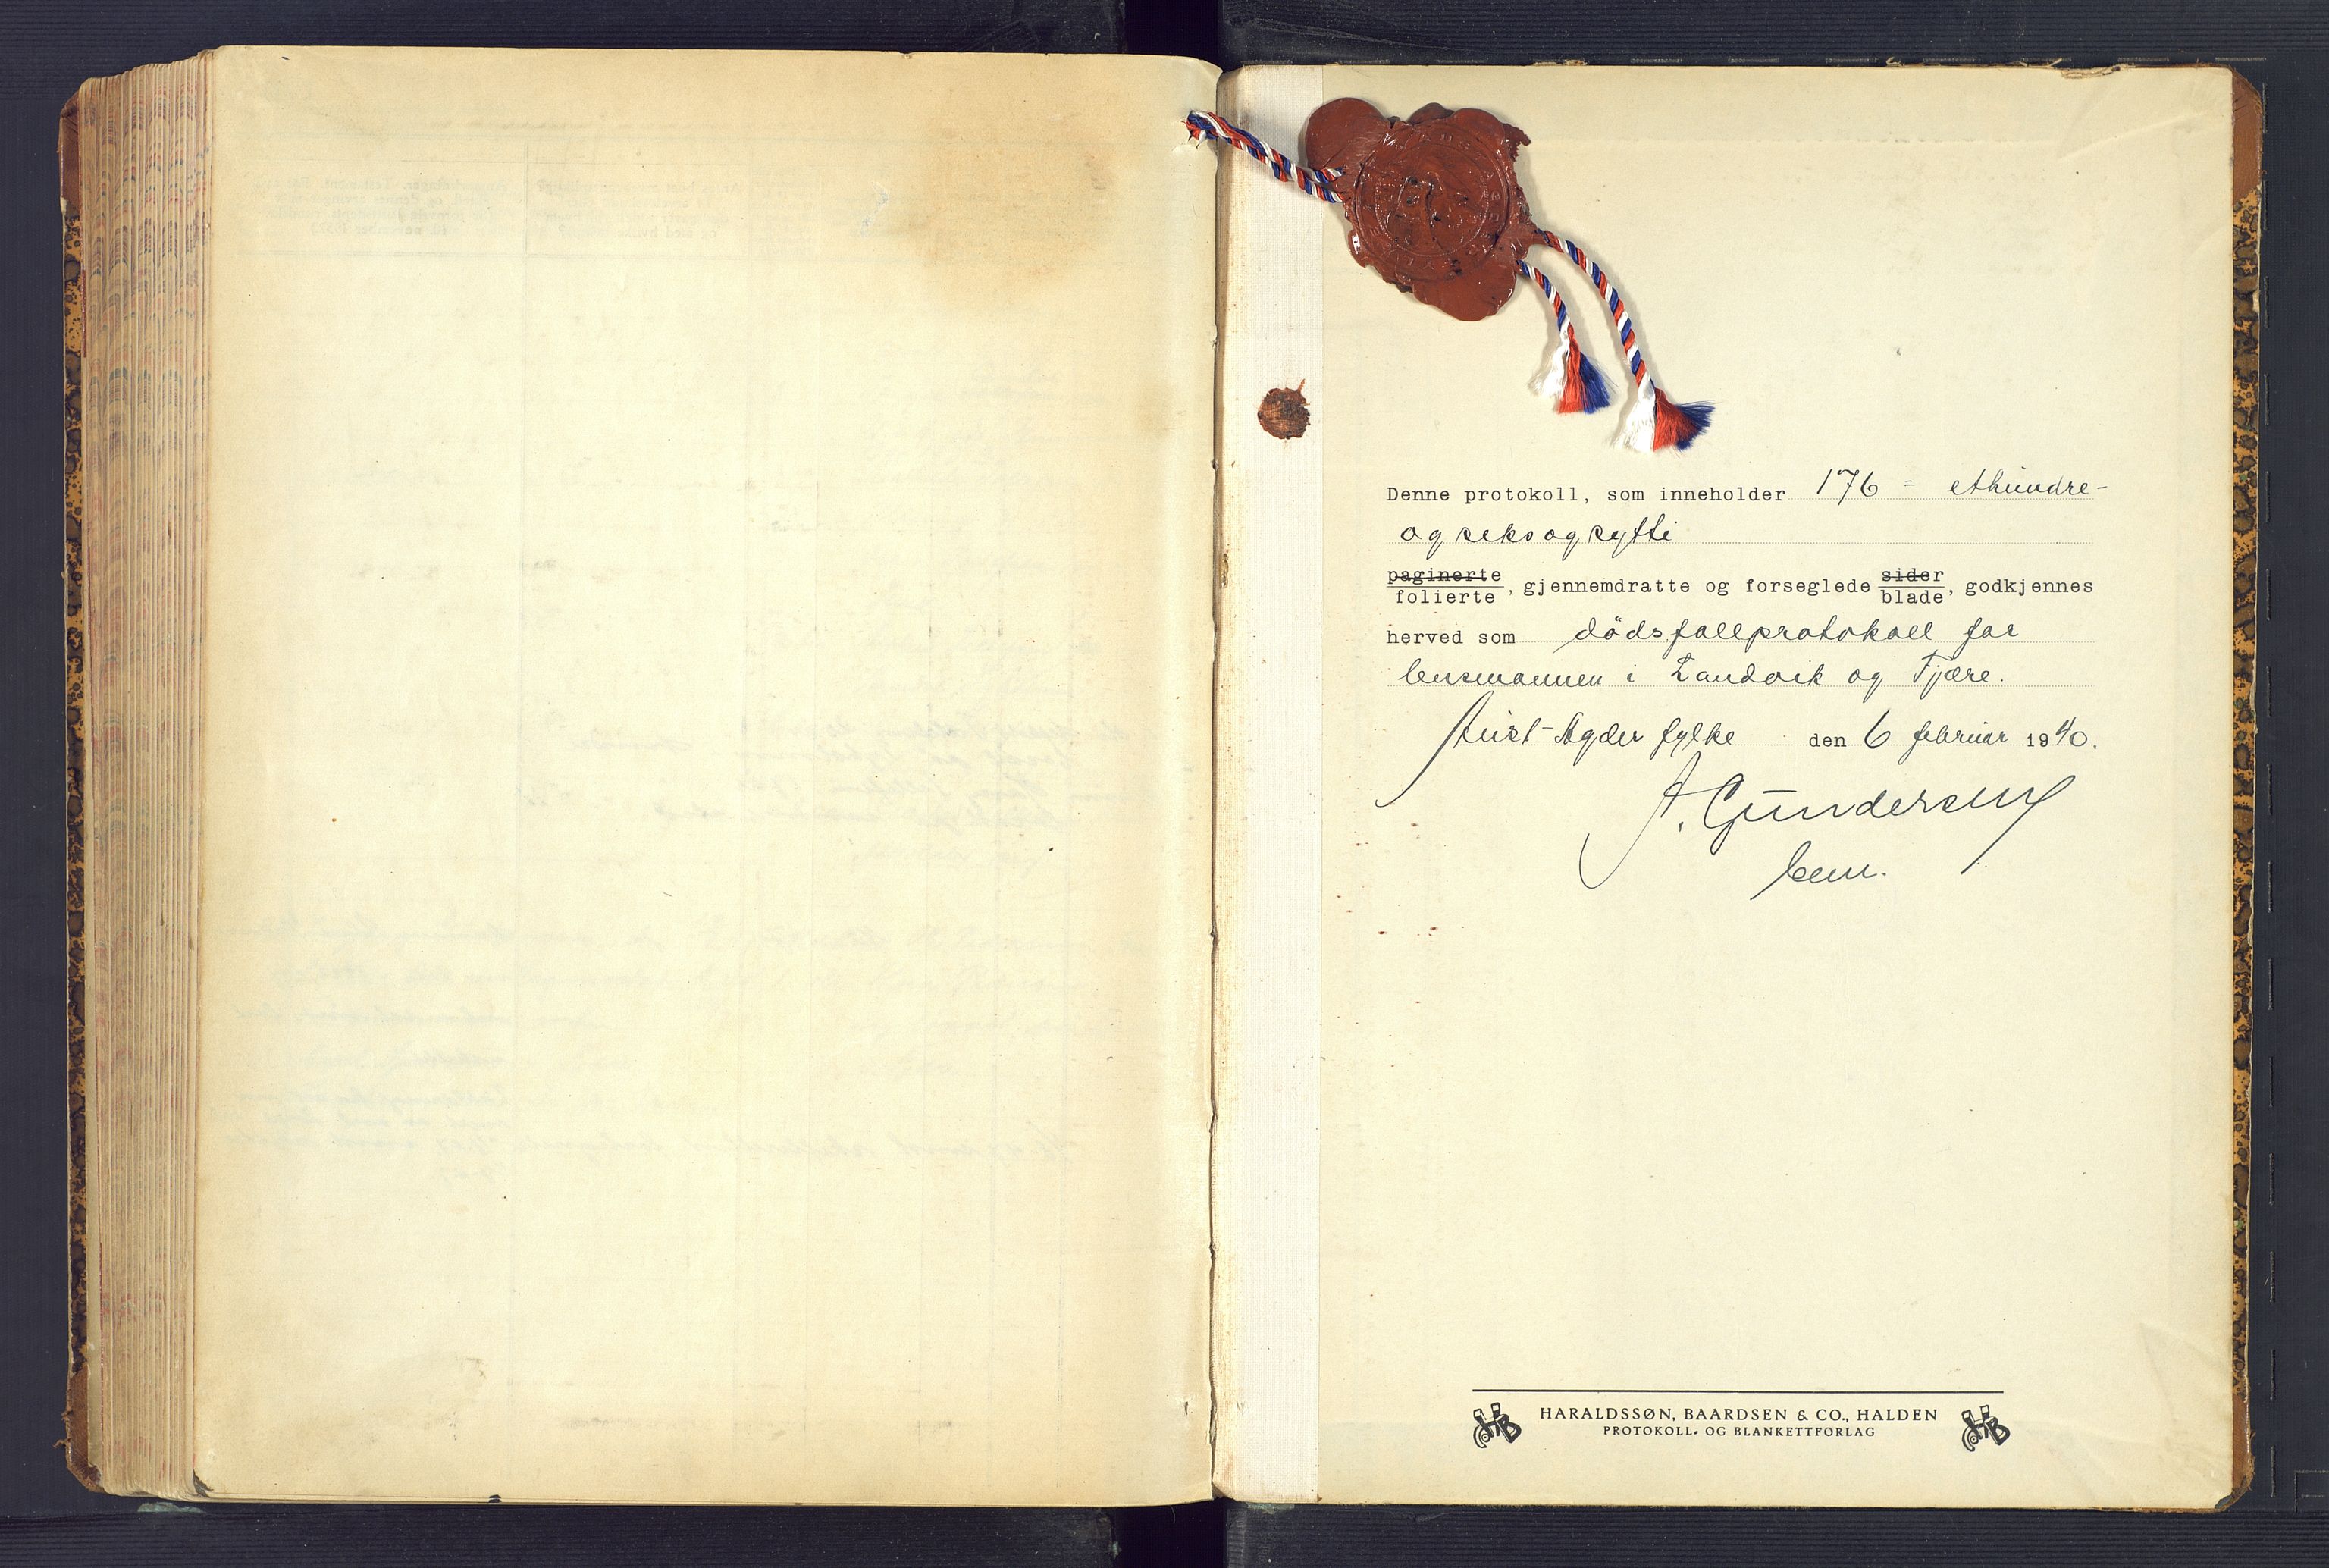 Denne protokoll, som inneholder 176 = ethundre-
og seks og sytti
paginerte, gjennemdratte og forseglede sider, godkjennes
folierte blade
herved som dödsfallprotokoll for
lensmannen i Landvik og Fjære.
Aust-Agder fylke den 6 februar 1940.
A. Gundersen
HARALDSSØN, BAARDSEN & CO., HALDEN
PROTOKOLL- OG BLANKETTFORLAG